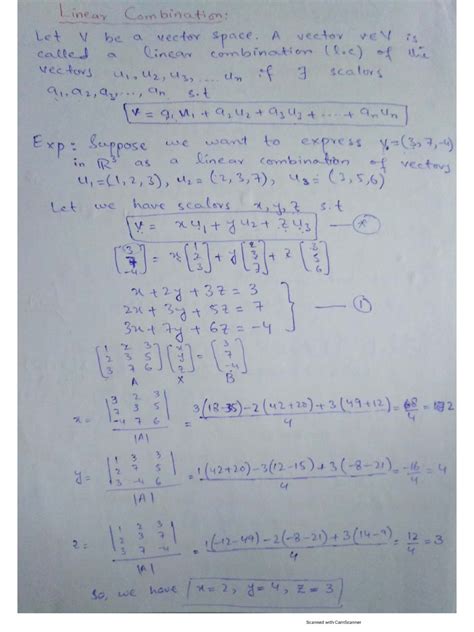 Linear Combination:
Let V be a vector space. A vector v∈V is
called a linear combination (l.c) of the
vectors u₁, u₂, u₃, ... uₙ if ∃ scalors
a₁, a₂, a₃, ..., aₙ s.t
v = a₁u₁ + a₂u₂ + a₃u₃ + ... + aₙuₙ
Exp: Suppose we want to express v=(3,7,-4)
in ℝ³ as a linear combination of vectors
u₁=(1,2,3), u₂=(2,3,7), u₃=(3,5,6)
Let we have scalors x, y, z s.t
v = xu₁ + yu₂ + zu₃ — *
[3 7 -4] = x[1 2 3] + y[2 3 7] + z[3 5 6]
x + 2y + 3z = 3
2x + 3y + 5z = 7 — ①
3x + 7y + 6z = -4
[1 2 3 / 2 3 5 / 3 7 6] [x y z] = [3 7 -4]
A X B
x = |3 2 3 / 7 3 5 / -4 7 6| / |A| = 3(18-35)-2(42+20)+3(49+12) / 4 = 68/4 = 2
y = |1 3 3 / 2 7 5 / 3 -4 6| / |A| = 1(42+20)-3(12-15)+3(-8-21) / 4 = -16/4 = 4
z = |1 2 3 / 2 3 7 / 3 7 -4| / |A| = 1(-12-49)-2(-8-21)+3(14-9) / 4 = 12/4 = 3
So, we have x=2, y=4, z=3
Scanned with CamScanner